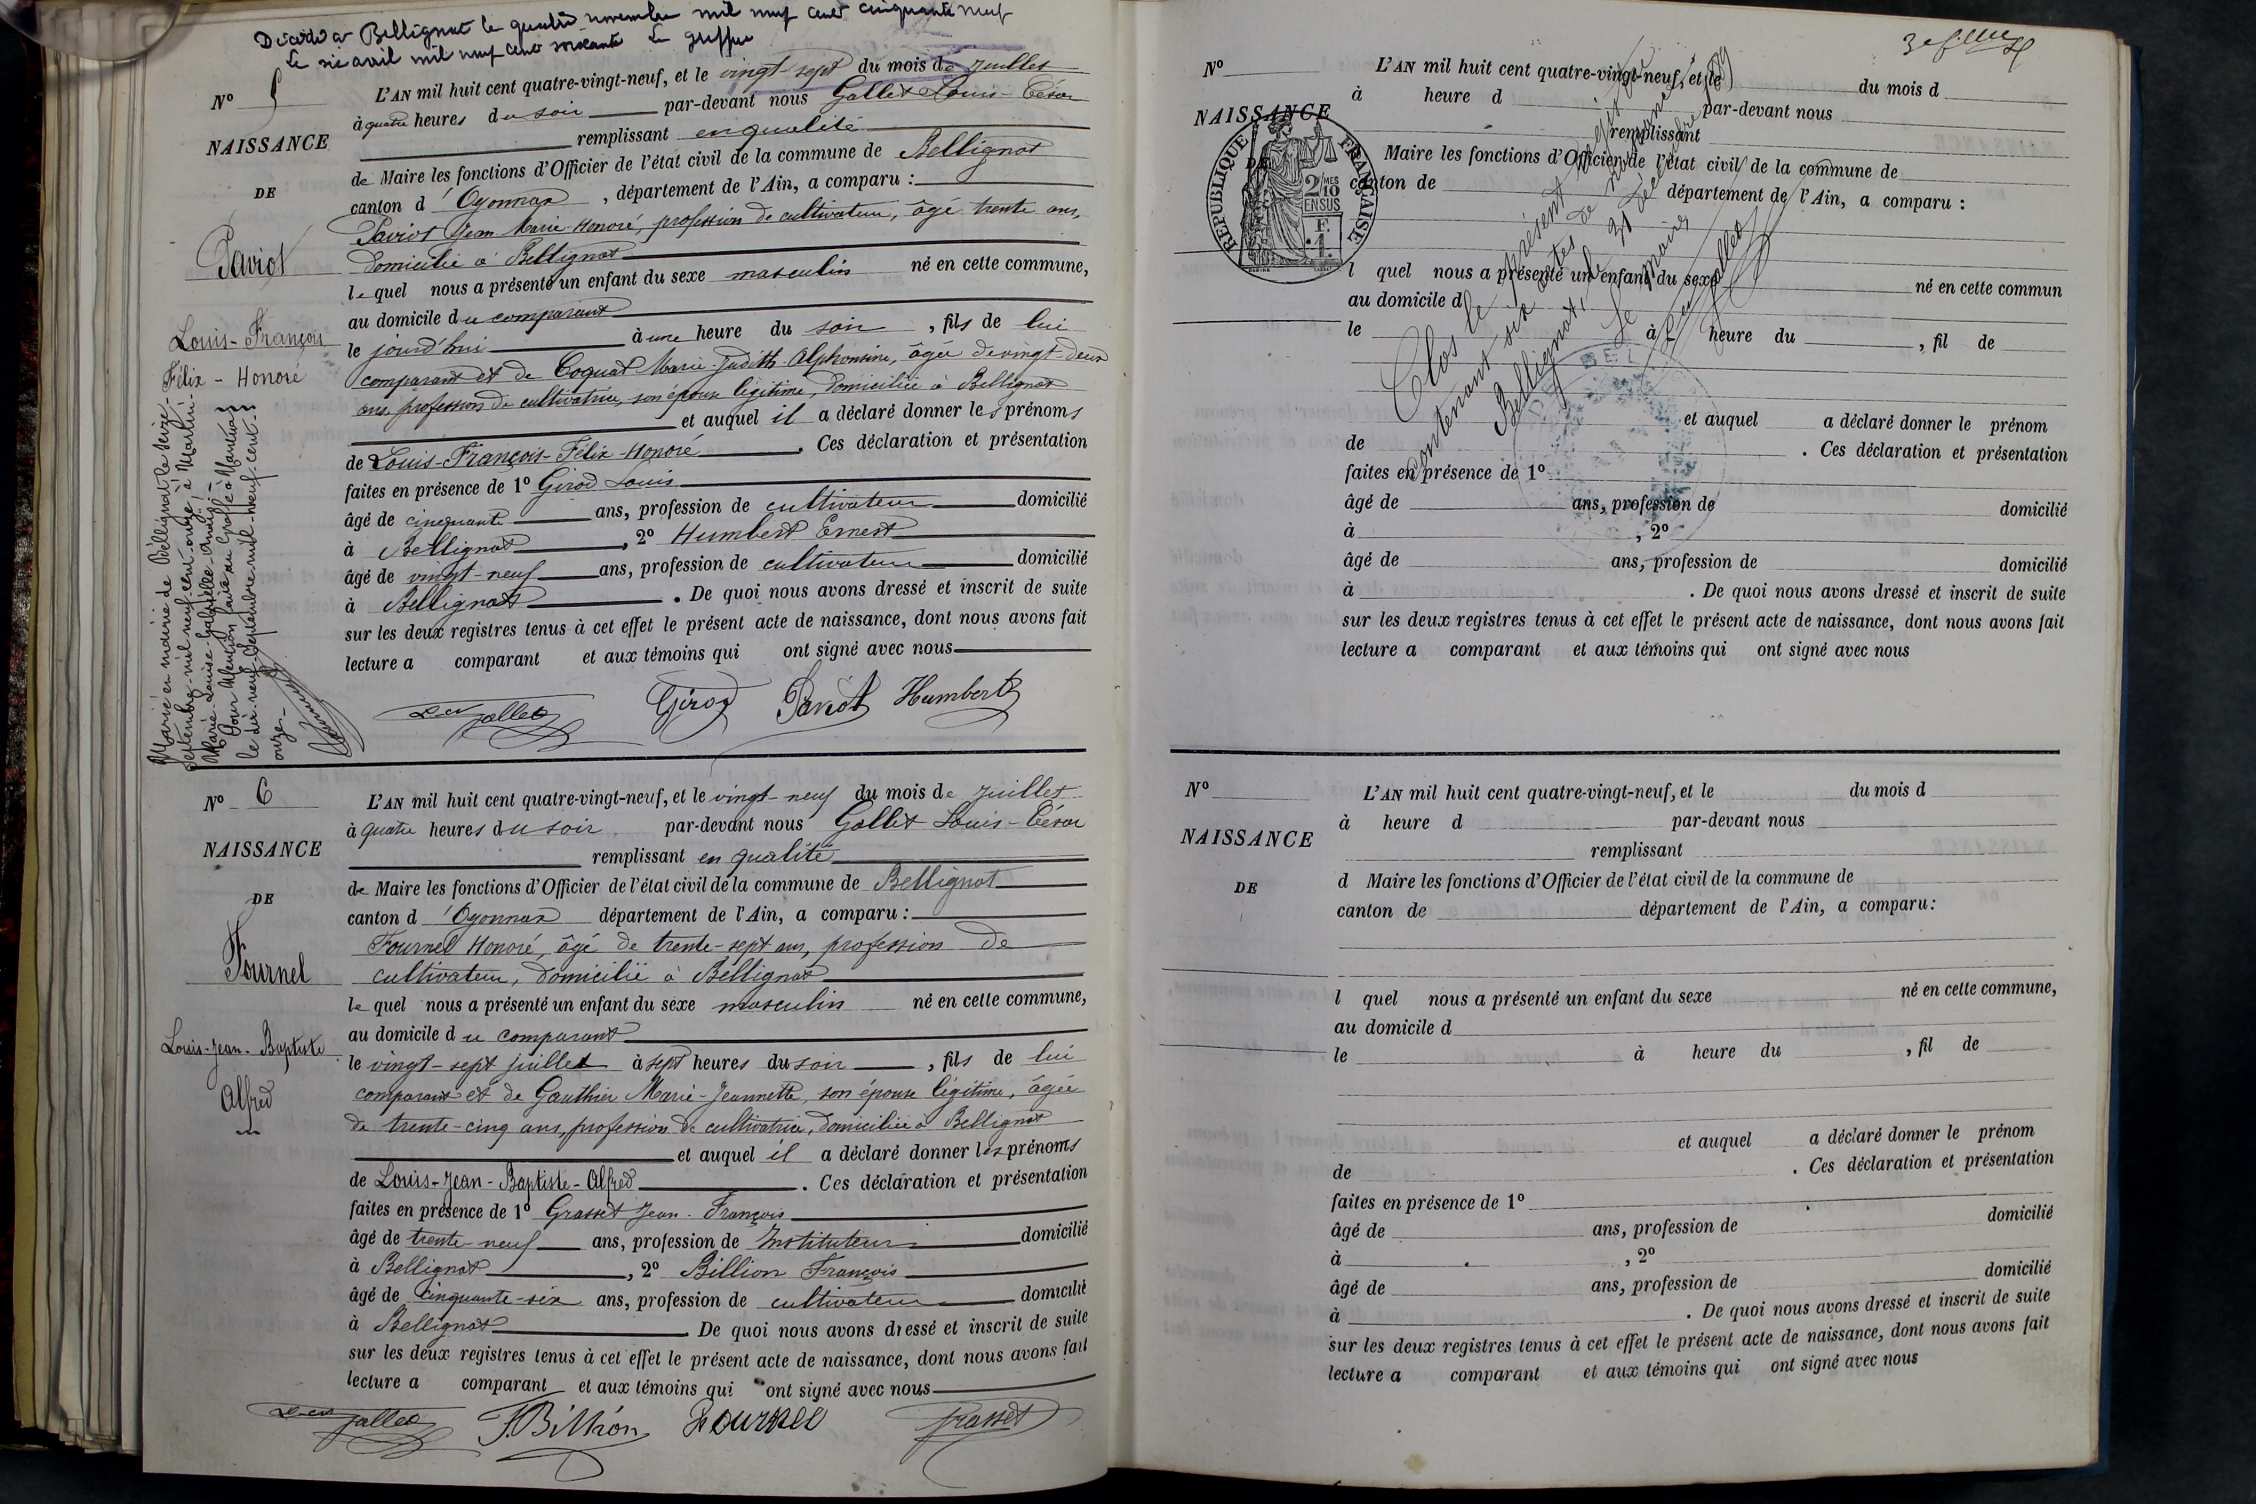 Décédé à Bellignat le quatre novembre mil neuf cent cinquante neuf
Le six avril mil neuf cent soixante Le greffier
N° 5
NAISSANCE
DE
Paviot
Louis-François
Félix - Honoré
Marié en mairie de Bellignat le seize
septembre mil neuf cent onze, à Martin
Marie-Louise-Gabrielle
Pour Mention faite au Greffe à Nantua
le dix-neuf Septembre mil neuf cent
onze.-
L'AN mil huit cent quatre-vingt-neuf, et le vingt-sept du mois de Juillet
à quatre heures du soir par-devant nous Gallet Louis-César
remplissant en qualité
de Maire les fonctions d'Officier de l'état civil de la commune de Bellignat
canton d'Oyonnax, département de l'Ain, a comparu :
Paviot Jean Marie Honoré, profession de cultivateur, âgé trente ans,
domicilié à Bellignat
lequel nous a présenté un enfant du sexe masculin né en cette commune,
au domicile du comparant
le jourd'hui à une heure du soir, fils de lui
comparant et de Coquat Marie-Judith Alphonsine, âgée de vingt-deux
ans, profession de cultivatrice, son épouse légitime, domiciliée à Bellignat
et auquel il a déclaré donner les prénoms
de Louis-François-Félix-Honoré. Ces déclaration et présentation
faites en présence de 1° Girod Louis
âgé de cinquante ans, profession de cultivateur domicilié
à Bellignat, 2° Humbert Ernest
âgé de vingt-neuf ans, profession de cultivateur domicilié
à Bellignat. De quoi nous avons dressé et inscrit de suite
sur les deux registres tenus à cet effet le présent acte de naissance, dont nous avons fait
lecture a comparant et aux témoins qui ont signé avec nous
Gallet Girod Paviot Humbert
N° 6
NAISSANCE
DE
Fournel
Louis-Jean-Baptiste
Alfred
L'AN mil huit cent quatre-vingt-neuf, et le vingt-neuf du mois de Juillet
à quatre heures du soir par-devant nous Gallet Louis-César
remplissant en qualité
de Maire les fonctions d'Officier de l'état civil de la commune de Bellignat
canton d'Oyonnax département de l'Ain, a comparu :
Fournel Honoré, âgé de trente-sept ans, profession de
cultivateur, domicilié à Bellignat
lequel nous a présenté un enfant du sexe masculin né en cette commune,
au domicile du comparant
le vingt-sept juillet à sept heures du soir, fils de lui
comparant et de Gauthier Marie-Jeannette, son épouse légitime, âgée
de trente-cinq ans, profession de cultivatrice, domiciliée à Bellignat
et auquel il a déclaré donner les prénoms
de Louis-Jean-Baptiste-Alfred. Ces déclaration et présentation
faites en présence de 1° Grasset Jean-François
âgé de trente-neuf ans, profession de Instituteur domicilié
à Bellignat, 2° Billion François
âgé de cinquante-six ans, profession de cultivateur domicilié
à Bellignat. De quoi nous avons dressé et inscrit de suite
sur les deux registres tenus à cet effet le présent acte de naissance, dont nous avons fait
lecture a comparant et aux témoins qui ont signé avec nous
Gallet F. Billion Fournel Grasset
N°
NAISSANCE
DE
RÉPUBLIQUE FRANÇAISE
2/10 MES
EN SUS
L'AN mil huit cent quatre-vingt-neuf, et le du mois d
à heure d par-devant nous
remplissant
Maire les fonctions d'Officier de l'état civil de la commune de
canton de département de l'Ain, a comparu :
l quel nous a présenté un enfant du sexe né en cette commun
au domicile d
le à heure du , fil de
et auquel a déclaré donner le prénom
de . Ces déclaration et présentation
faites en présence de 1°
âgé de ans, profession de domicilié
à , 2°
âgé de ans, profession de domicilié
à . De quoi nous avons dressé et inscrit de suite
sur les deux registres tenus à cet effet le présent acte de naissance, dont nous avons fait
lecture a comparant et aux témoins qui ont signé avec nous
Clos le présent registre
contenant six actes de naissance
Bellignat, le 31 décembre 1889
Le Maire,
Gallet
N°
NAISSANCE
DE
L'AN mil huit cent quatre-vingt-neuf, et le du mois d
à heure d par-devant nous
remplissant
d Maire les fonctions d'Officier de l'état civil de la commune de
canton de département de l'Ain, a comparu :
l quel nous a présenté un enfant du sexe né en cette commune,
au domicile d
le à heure du , fil de
et auquel a déclaré donner le prénom
de . Ces déclaration et présentation
faites en présence de 1°
âgé de ans, profession de domicilié
à , 2°
âgé de ans, profession de domicilié
à . De quoi nous avons dressé et inscrit de suite
sur les deux registres tenus à cet effet le présent acte de naissance, dont nous avons fait
lecture a comparant et aux témoins qui ont signé avec nous